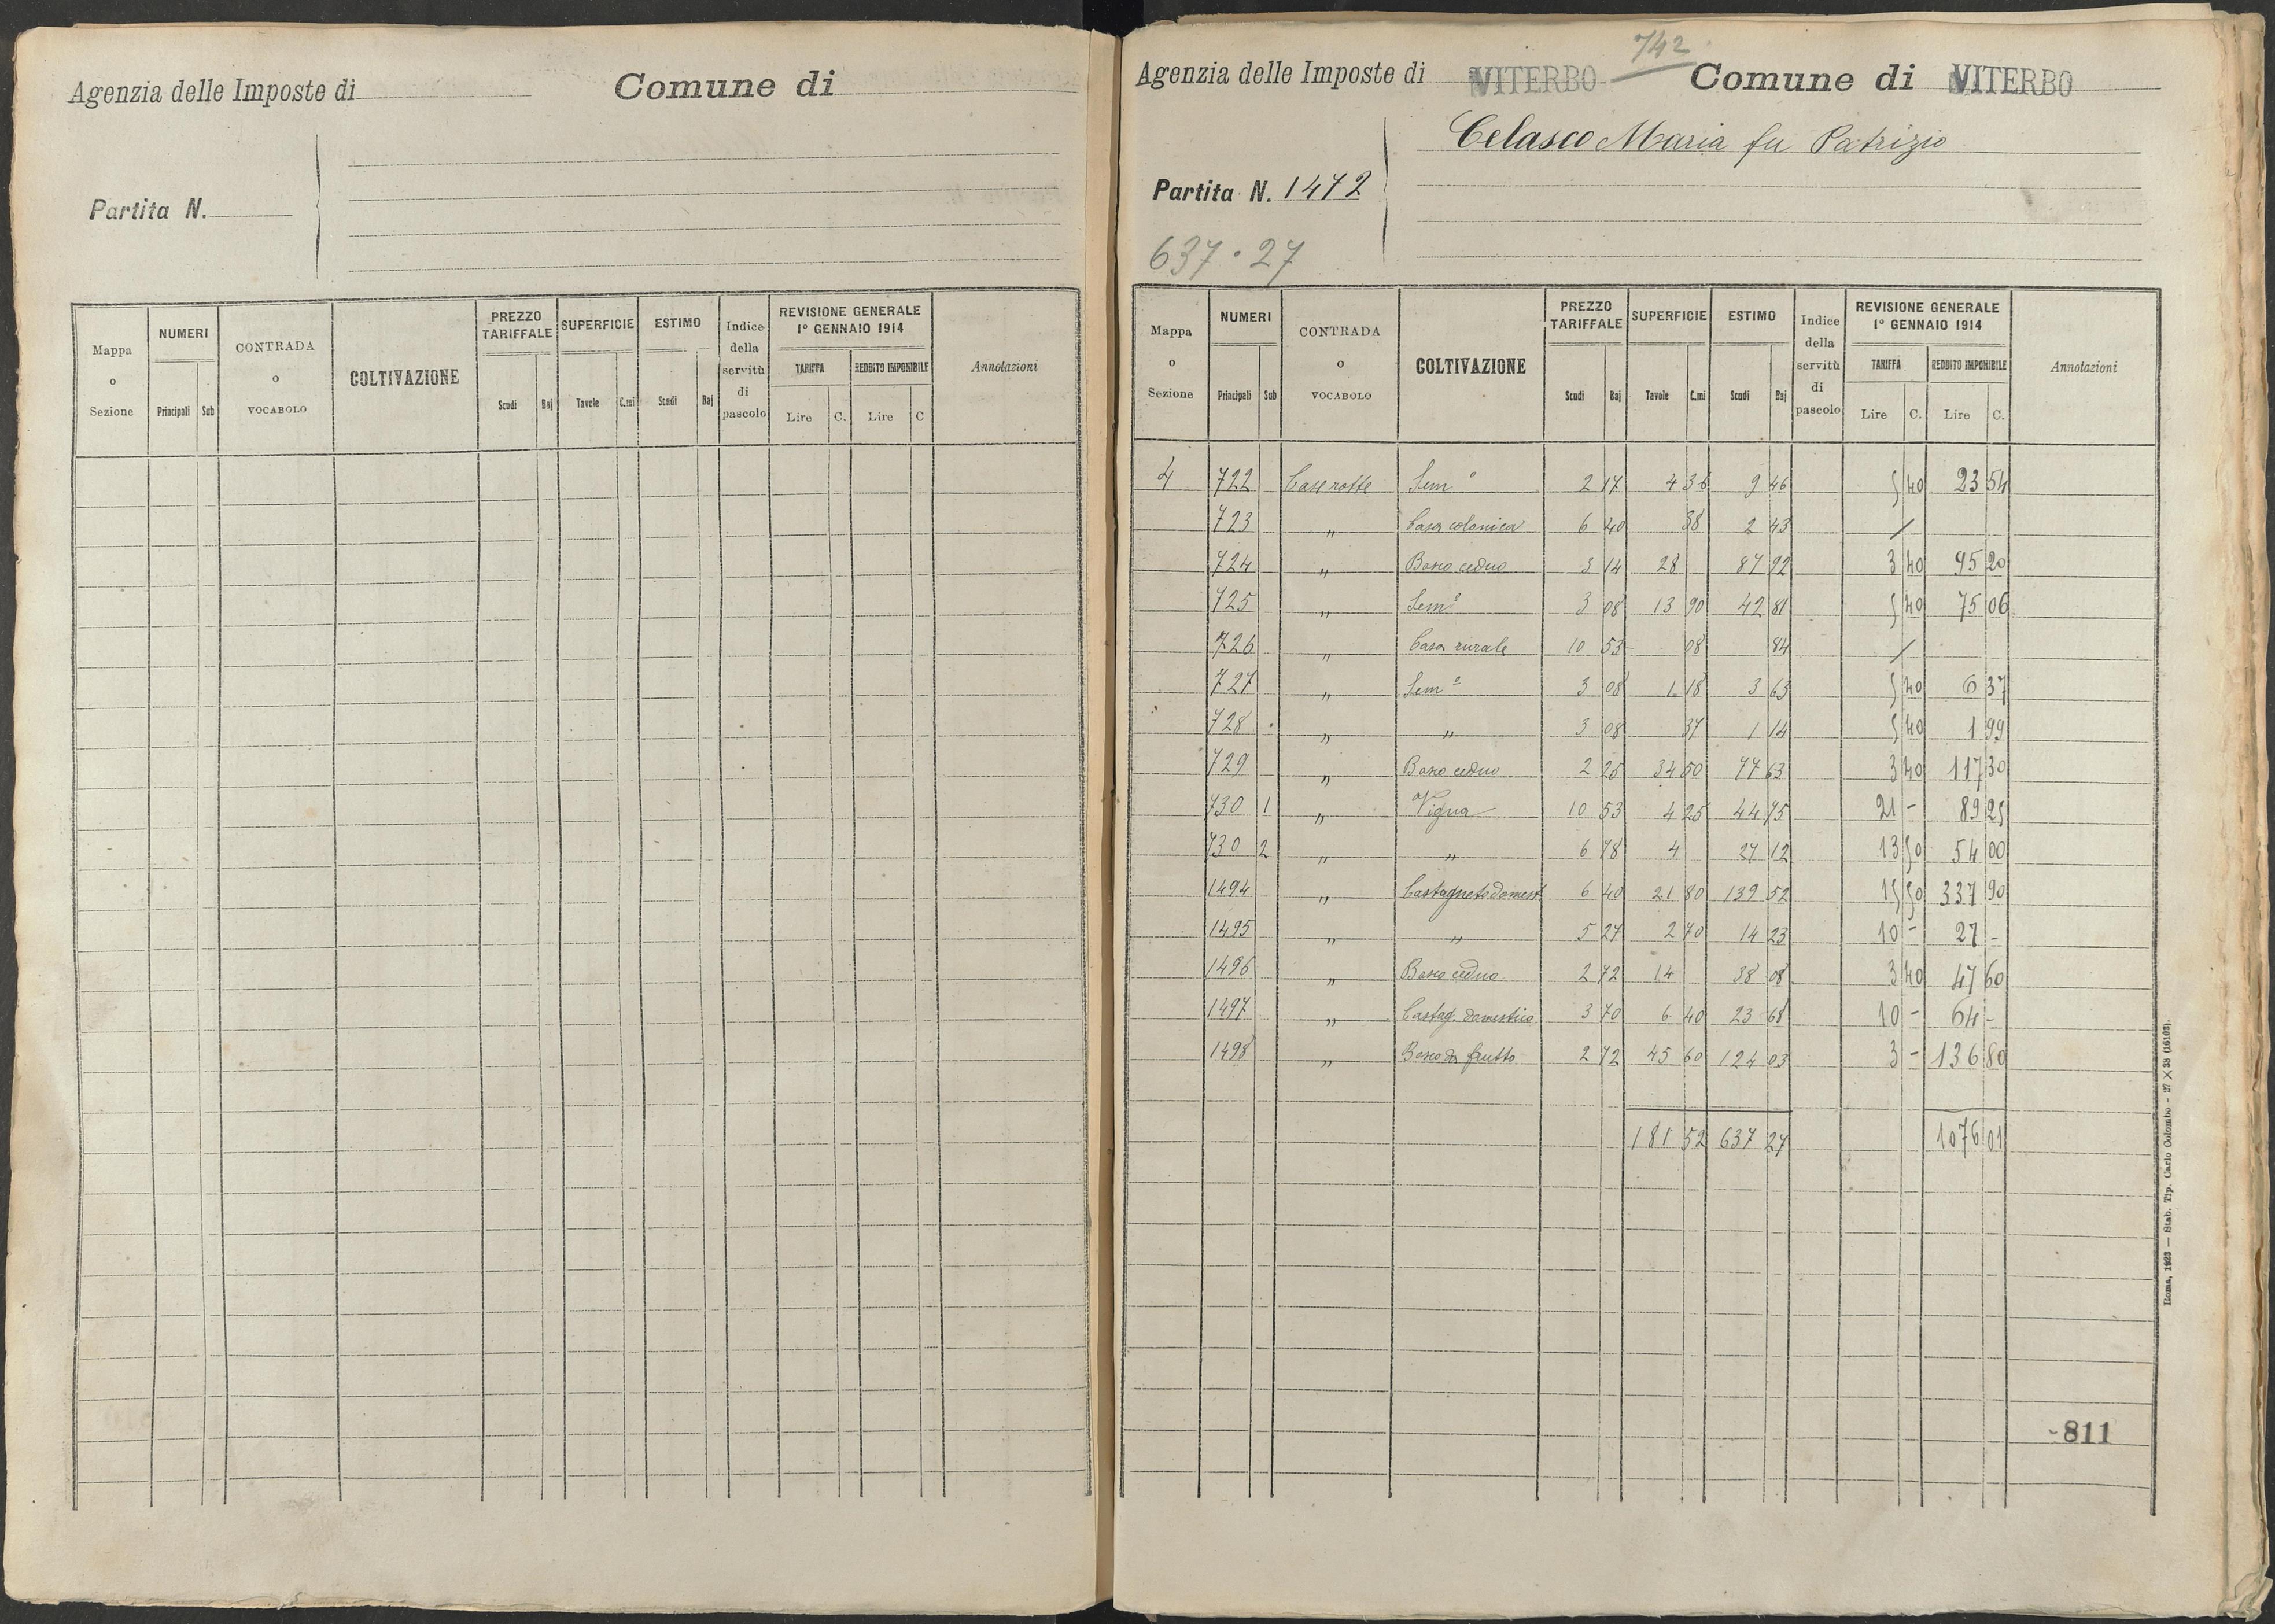 Agenzia delle Imposte di Comune di
Partita N.
Mappa o Sezione NUMERI Principali Sub CONTRADA o VOCABOLO COLTIVAZIONE PREZZO TARIFFALE Scudi Baj SUPERFICIE Tavole C.mi ESTIMO Scudi Baj Indice della servitù di pascolo REVISIONE GENERALE 1º GENNAIO 1914 TARIFFA Lire C. REDDITO IMPONIBILE Lire C Annotazioni
742
Agenzia delle Imposte di VITERBO Comune di VITERBO
Celasco Maria fu Patrizio
Partita N. 1472
637·27
Mappa o Sezione NUMERI Principali Sub CONTRADA o VOCABOLO COLTIVAZIONE PREZZO TARIFFALE Scudi Baj SUPERFICIE Tavole C.mi ESTIMO Scudi Baj Indice della servitù di pascolo REVISIONE GENERALE 1º GENNAIO 1914 TARIFFA Lire C. REDDITO IMPONIBILE Lire C. Annotazioni
4 722 Case rotte Sem° 2 17 4 36 9 46 5 40 23 54
723 " Casa colonica 6 40 38 2 43 /
724 " Bosco ceduo 3 14 28 87 92 3 40 95 20
725 " Sem° 3 08 13 90 42 81 5 40 75 06
726 " Casa rurale 10 53 08 84 /
727 " Sem° 3 08 1 18 3 63 5 40 6 37
728 " " 3 08 37 1 14 5 40 1 99
729 " Bosco ceduo 2 25 34 50 77 63 3 40 117 30
730 1 " Vigna 10 53 4 25 44 75 21 - 89 25
730 2 " " 6 78 4 27 12 13 50 54 00
1494 " Castagneto domest 6 40 21 80 139 52 15 50 337 90
1495 " " 5 27 2 70 14 23 10 - 27 -
1496 " Bosco ceduo 2 72 14 38 08 3 40 47 60
1497 " Castag. domestico 3 70 6 40 23 68 10 - 64 -
1498 " Bosco da frutto 2 72 45 60 124 03 3 - 136 80
181 52 637 27 1076 01
811
Roma, 1923 — Stab. Tip. Carlo Colombo - 27 × 38 (16103).